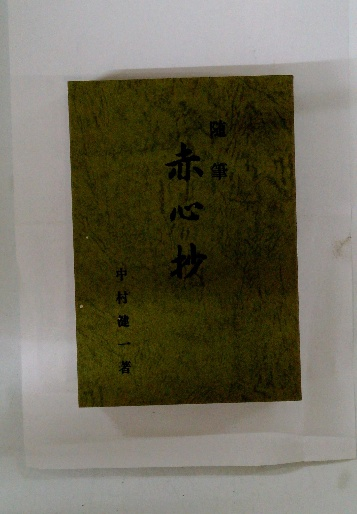 随筆
赤心抄
中村健一著